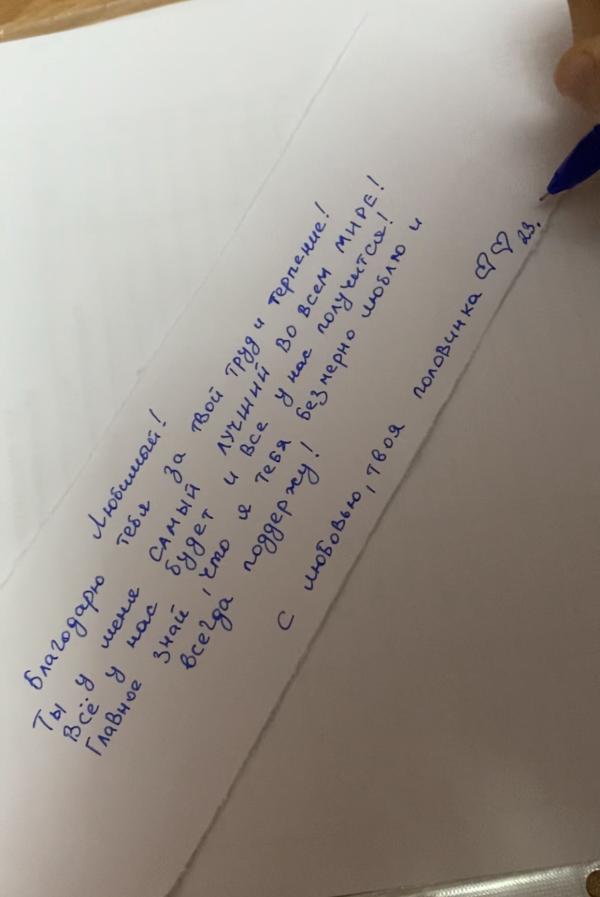 Любимый!
Благодарю тебя за твой труд и терпение!
Ты у меня самый лучший во всем МИРЕ!
Всё у нас будет и все у нас получится!
Главное знай, что я тебя безмерно люблю и
всегда поддержу!
С любовью, твоя половинка ♡♡ 23.